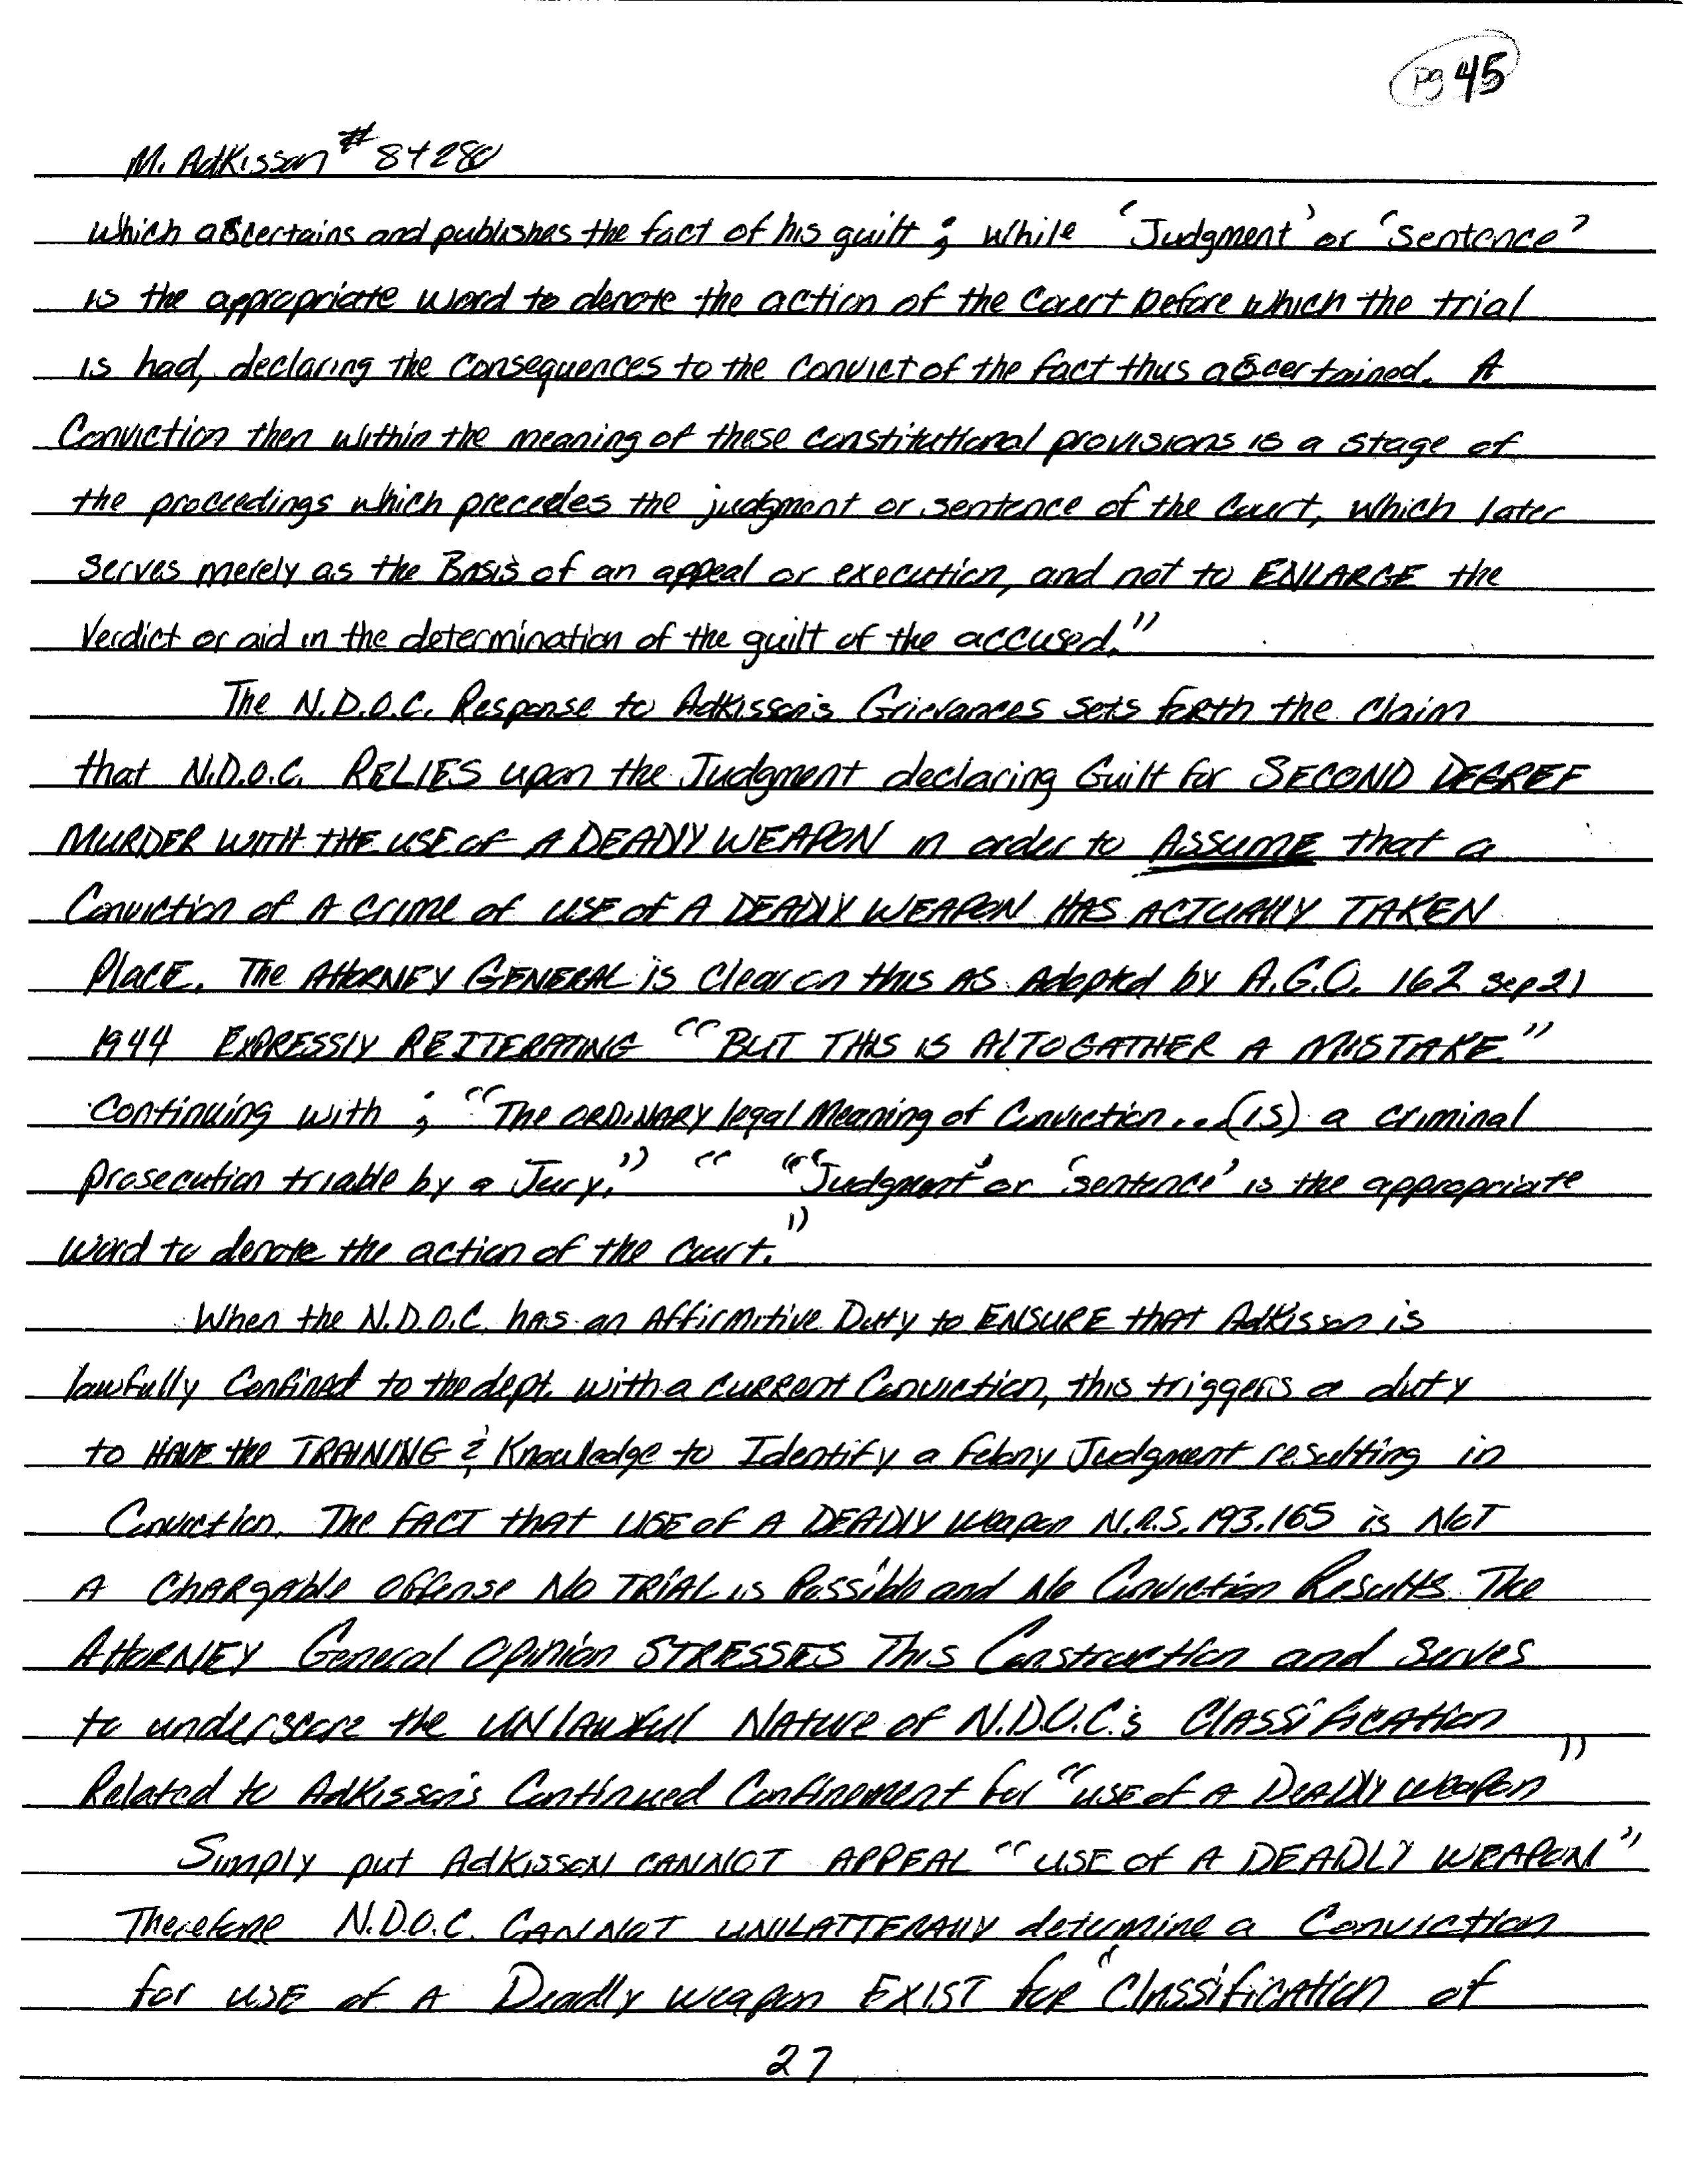 pg 45
M. Adkisson # 84280
which ascertains and publishes the fact of his guilt ; while 'Judgment' or 'Sentence'
is the appropriate word to denote the action of the Court before which the trial
is had, declaring the consequences to the convict of the fact thus ascertained. A
Conviction then within the meaning of these constitutional provisions is a stage of
the proceedings which precedes the judgment or sentence of the Court, which later
serves merely as the Basis of an appeal or execution, and not to ENLARGE the
Verdict or aid in the determination of the guilt of the accused."
The N.D.O.C. Response to Adkisson's Grievances sets forth the claim
that N.D.O.C. RELIES upon the Judgment declaring Guilt for SECOND DEGREE
MURDER WITH THE USE of A DEADLY WEAPON in order to ASSUME that a
Conviction of A crime of USE of A DEADLY WEAPON HAS ACTUALLY TAKEN
PlacE. The AttORNEY GENERAL is clear on this AS Adopted by A.G.O. 162 sep 21
1944 EXPRESSLY REITERATING "BUT THIS IS ALTOGATHER A MISTAKE."
Continuing with ; "The ORDINARY legal Meaning of Conviction...(is) a criminal
prosecution triable by a Jury." " "'Judgment' or 'sentence' is the appropriate
word to denote the action of the court."
When the N.D.O.C. has an Affirmitive Duty to ENSURE that Adkisson is
lawfully Confined to the dept. with a current Conviction, this triggers a duty
to HAVE the TRAINING & Knowledge to Identify a felony Judgment resulting in
Conviction. The FACT that USE of A DEADLY Weapon N.R.S. 193.165 is NOT
A CHARgAble Offense No TRIAL is Possible and No Conviction Results. The
AttORNEY General Opinion STRESSES This Construction and Serves
to underscore the UNlAwful Nature of N.D.O.C.'s ClAssificAtion
Related to Adkisson's Continued Confinement for "USE of A DEADLY WEAPON"
Simply put AdKissoN CANNOT APPEAL "USE of A DEADLY WEAPON"
Therefore N.D.O.C. CANNOT UNILATTERALLY determine a Conviction
for USE of A Deadly weapon EXIST for "ClAssificAtion of
27